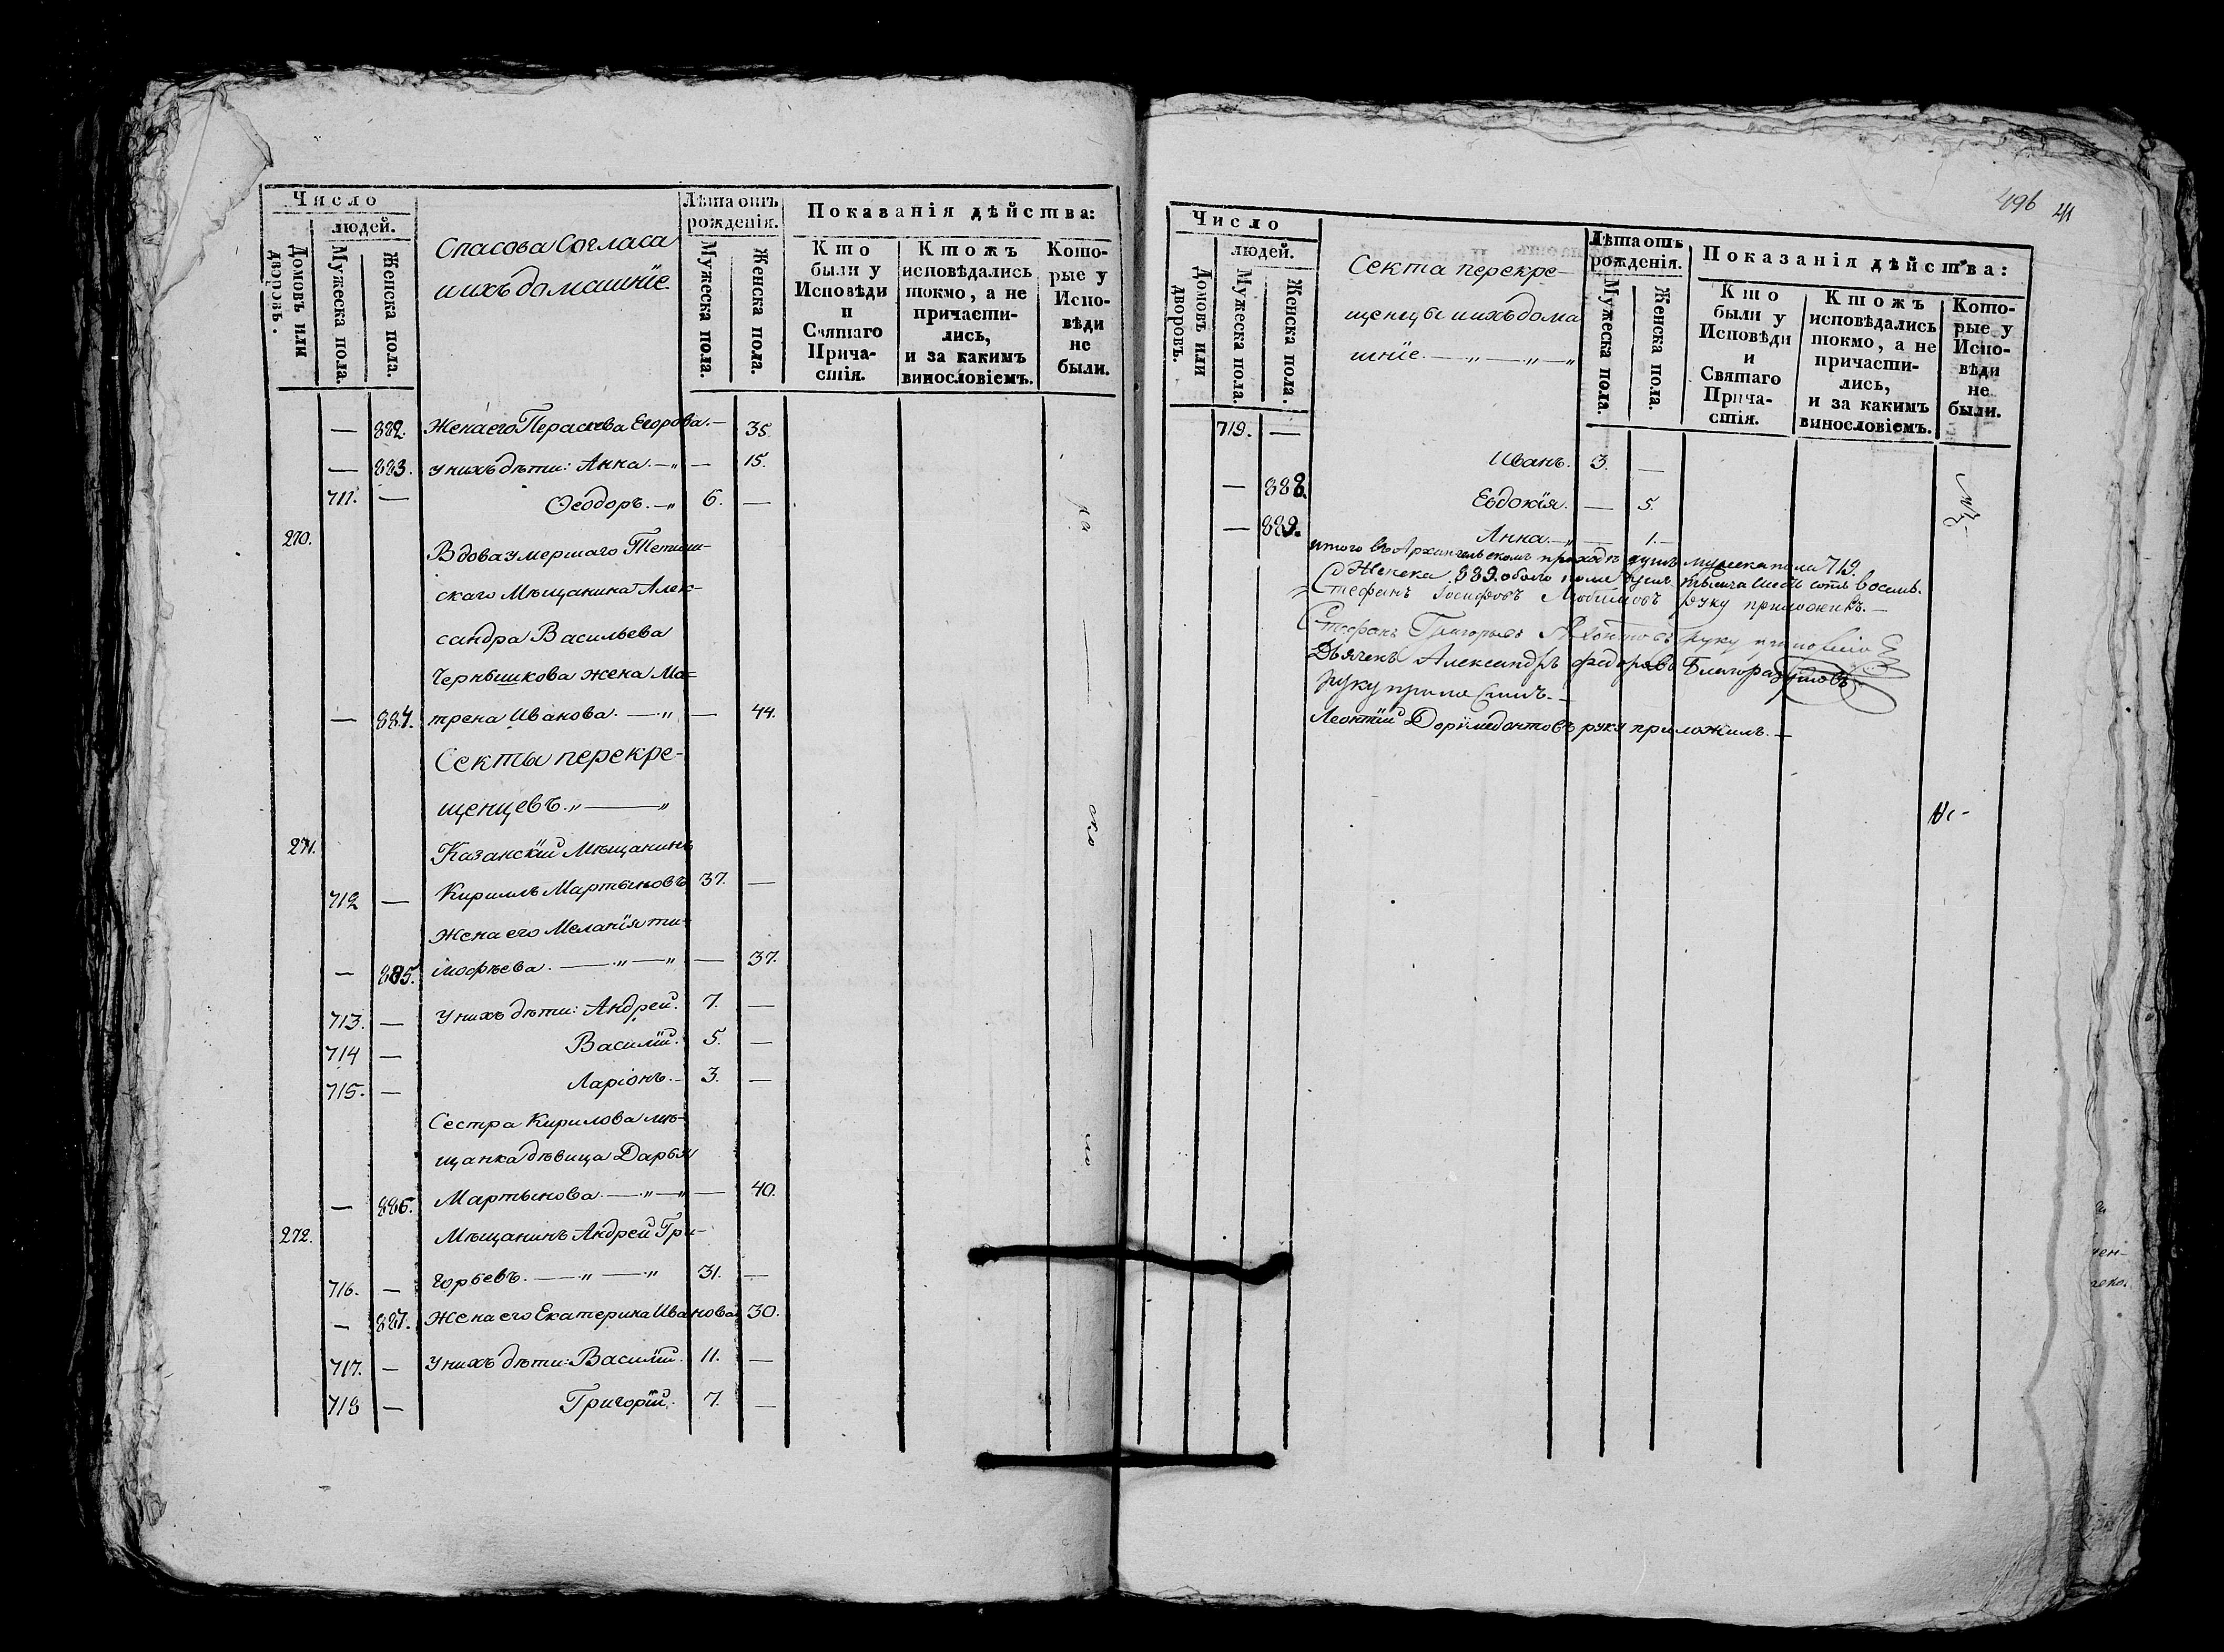 Число
людей.
Домовъ или дворовъ.
Мужеска пола.
Женска пола.
Спасова Согласа
и ихъ домашніе
Лѣта отъ
рожденія.
Мужеска пола.
Женска пола.
Показанія дѣйства:
Кто
были у
Исповѣди
и
Святаго
Прича-
стія.
Ктожъ
исповѣдались
токмо, а не
причасти-
лись,
и за какимъ
винословіемъ.
Кото-
рые у
Испо-
вѣди
не
были.
— 882. Жена его Параскева Егорова. — 35.
— 883. У нихъ дѣти: Анна. — „ — 15.
711. — Ѳеодоръ. — „ 6. —
270. Вдова умершаго Тетюш-
скаго Мѣщанина Алек-
сандра Васильева
Чернышкова жена Ма=
— 884. трена Иванова. — „ — 44.
Секты перекре-
щенцевъ. „ — „
271. Казанскій Мѣщанинъ
712 — Кириллъ Мартыновъ 37. —
Жена его Меланія Ти-
— 885. моѳеева. — „ — „ — 37.
713. — У нихъ дѣти: Андрей. 7. —
714 — Василій. 5. —
715. — Ларіонъ. — 3. —
Сестра Кирилова мѣ-
щанка дѣвица Дарья
— 886. Мартынова. — „ — „ — 40.
272. Мѣщанинъ Андрей Гри-
716. — горьевъ. — „ — „ 31. —
— 887. Жена его Екатерина Иванова 30.
717. — У нихъ дѣти: Василій. 11. —
718 — Григорій. 7. —
496
Число
людей.
Домовъ или дворовъ.
Мужеска пола.
Женска пола.
Секта перекре-
щенцы и ихъ дома
шніе. — „ — „ — „
Лѣта отъ
рожденія.
Мужеска пола.
Женска пола.
Показанія дѣйства:
Кто
были у
Исповѣди
и
Святаго
Прича-
стія.
Ктожъ
исповѣдались
токмо, а не
причасти-
лись,
и за какимъ
винословіемъ.
Кото-
рые у
Испо-
вѣди
не
были.
719. — Иванъ. 3. —
— 888. Евдокія. — 5.
— 889. Анна. — „ — 1. —
итого въ Архангельскомъ приходѣ душъ мужеска пола 719.
Женска 889. обоего пола душъ тысяча шесть сотъ восемь.
Стефанъ Іосифовъ Любимовъ руку приложилъ. —
Стефанъ Григорьевъ руку приложилъ
Дьячекъ Александръ Федоровъ Благоразумовъ
руку приложилъ. —
Леонтій Доримедонтовъ руку приложилъ. —